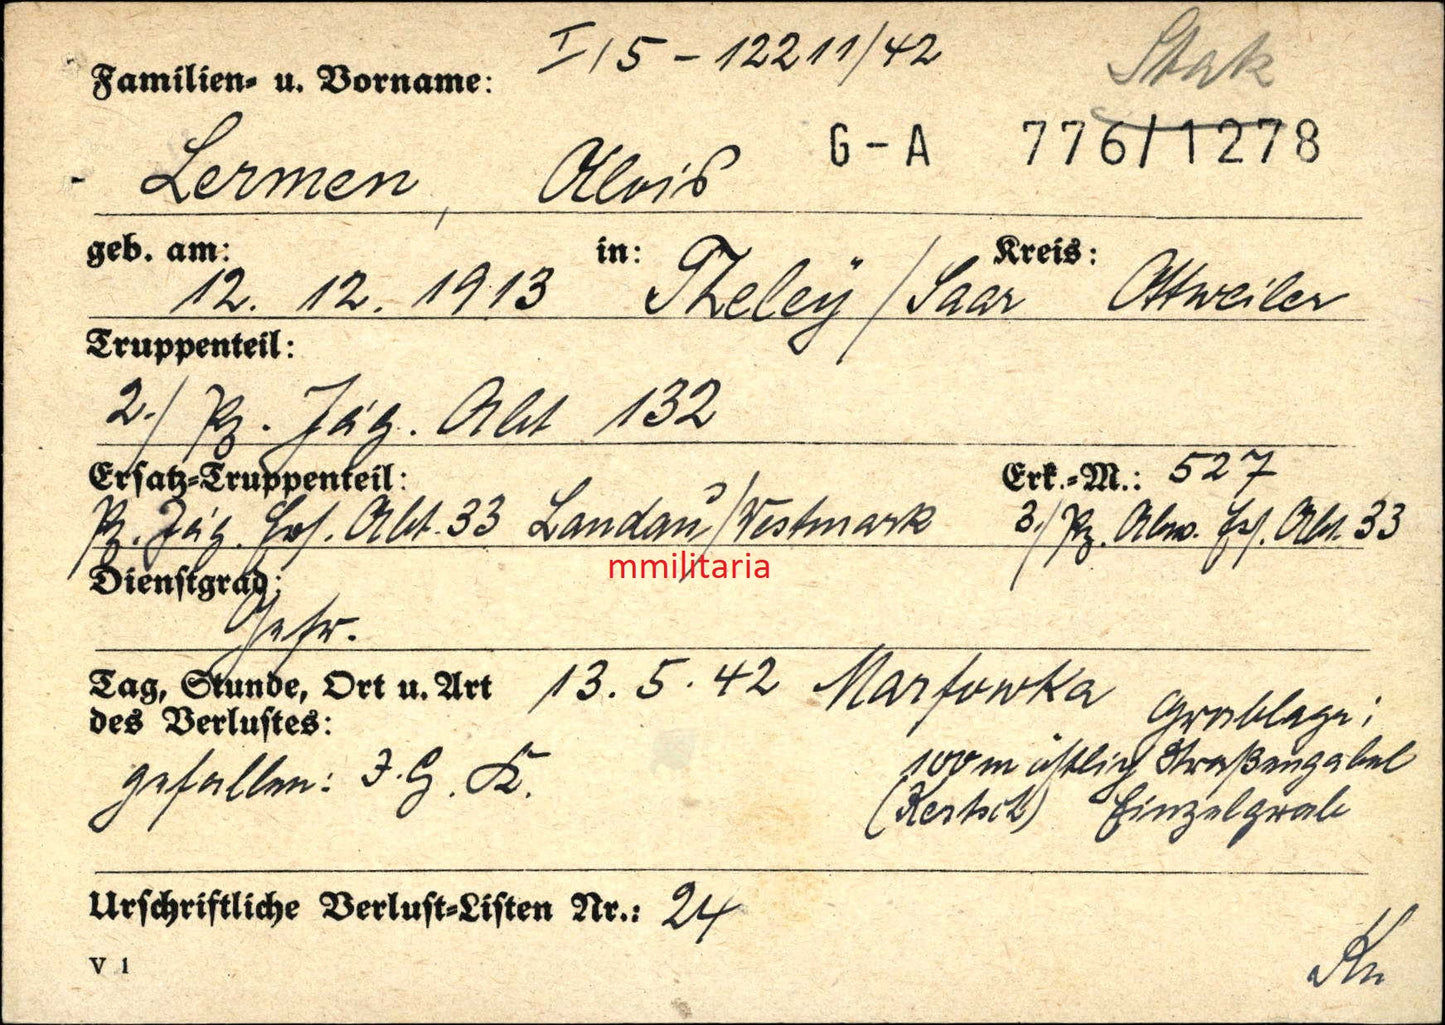 I/5 - 12211/42 Stak
Familien- u. Vorname:
G-A 776/1278
Lermen, Alois
geb. am: in: Kreis:
12. 12. 1913 Theleÿ / Saar Ottweiler
Truppenteil:
2./ Pz. Jäg. Abt 132
Ersatz-Truppenteil: Erk.-M.: 527
Pz. Jäg. Ers. Abt. 33 Landau/Westmark 3./Pz. Abw. Ers. Abt. 33
mmilitaria
Dienstgrad:
Gefr.
Tag, Stunde, Ort u. Art 13. 5. 42 Marfowka
des Verlustes: Grablage:
gefallen: I. G. K. 100 m östlich Straßengabel
(Kertsch) Einzelgrab
Urschriftliche Verlust-Listen Nr.: 24
V 1